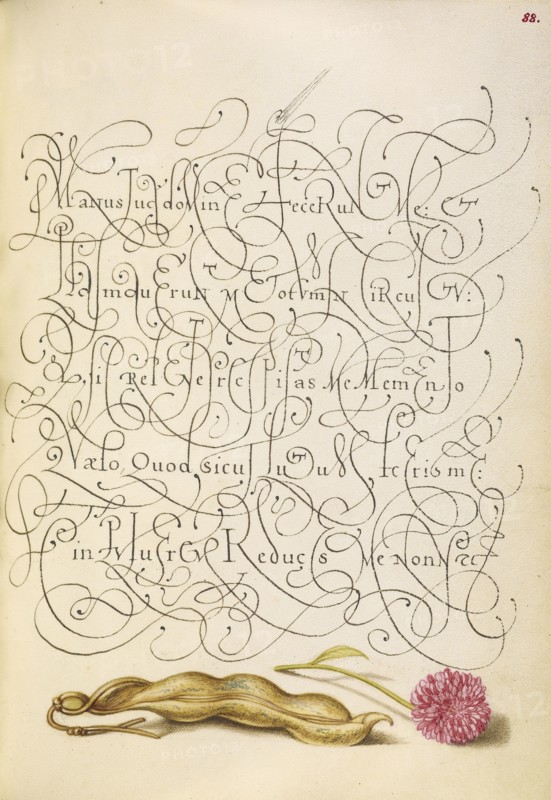 88.
Manus Tuę domine fecerunt Me: Et
Plasmauerunt me totum in circuitu:
Et sic repente precipitas me Memento
Quæso, Quod sicut lutum feceris me:
Et in Puluerem Reducęs me Nonne